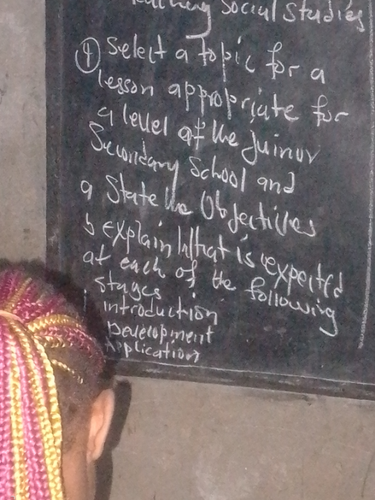 Teaching Social Studies
① Select a topic for a
lesson appropriate for
a level of the Juinor
Secondary School and
a State the Objectives
b explain What is expected
at each of the following
stages
introduction
Development
Application